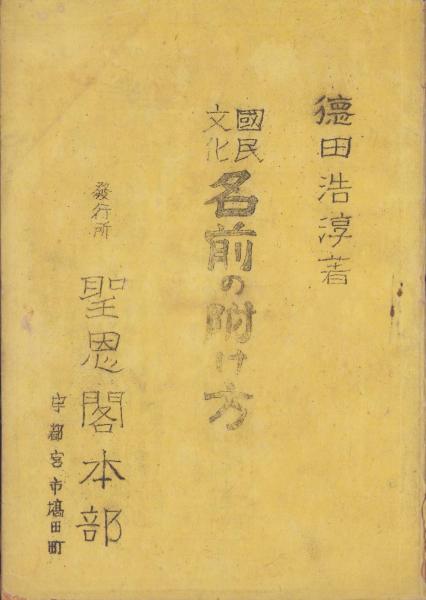 德田浩淳著
國民
文化
名前の附け方
發行所
聖恩閣本部
宇都宮市塙田町